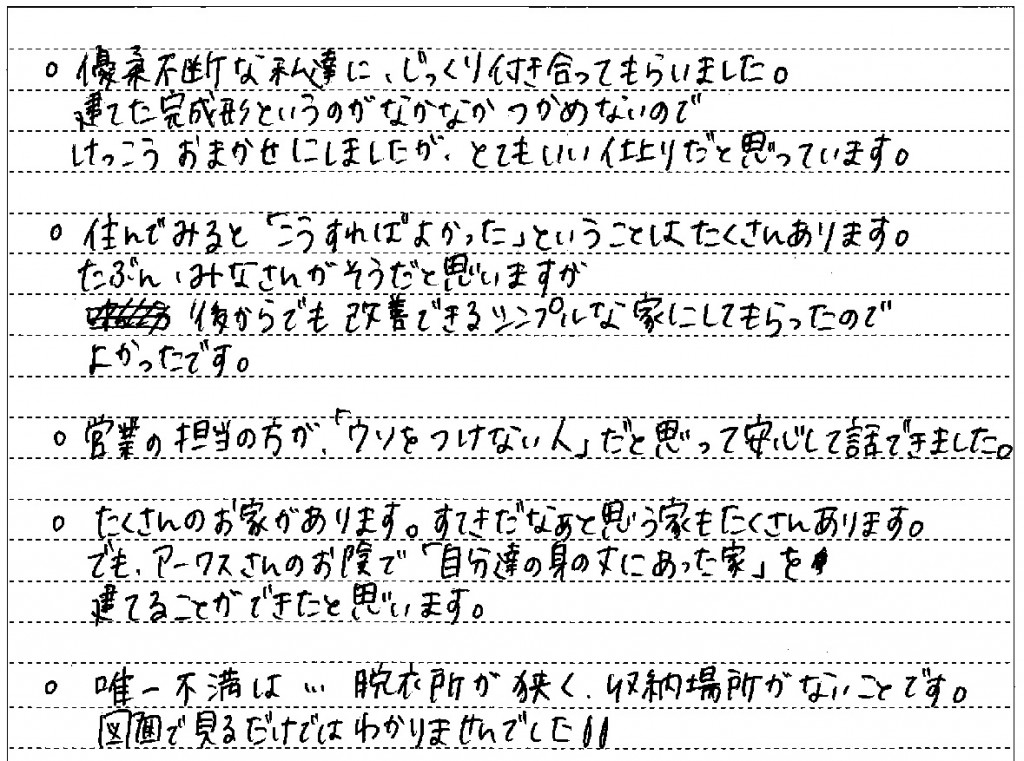 ○ 優柔不断な私達に、じっくり付き合ってもらいました。
建てた完成形というのがなかなかつかめないので
けっこうおまかせにしましたが、とてもいい仕上りだと思っています。
○ 住んでみると「こうすればよかった」ということはたくさんあります。
たぶん、みなさんがそうだと思いますが
後からでも改善できるシンプルな家にしてもらったので
よかったです。
○ 営業の担当の方が、「ウソをつけない人」だと思って安心して話できました。
○ たくさんのお家があります。すてきだなぁと思う家もたくさんあります。
でも、アークスさんのお陰で「自分達の身の丈にあった家」を
建てることができたと思います。
○ 唯一不満は… 脱衣所が狭く、収納場所がないことです。
図面で見るだけではわかりませんでした!!